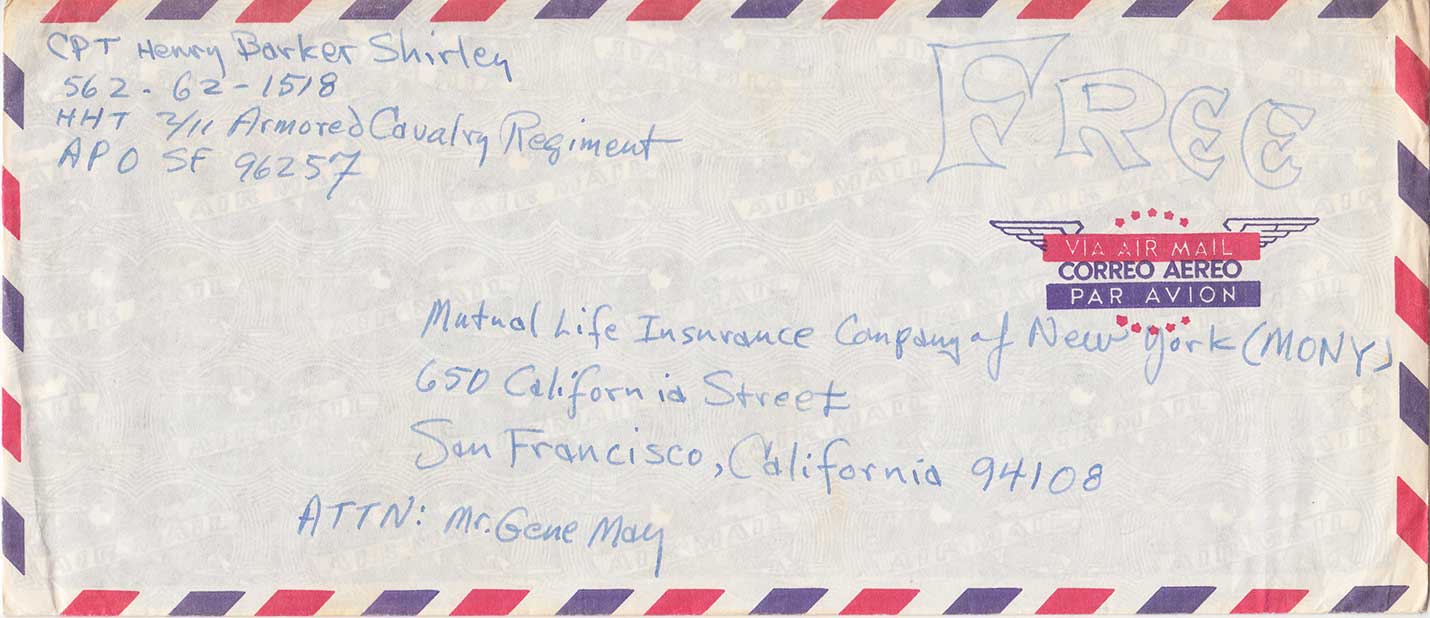 CPT Henry Barker Shirley
562-62-1518
HHT 2/11 Armored Cavalry Regiment
APO SF 96257
FREE
VIA AIR MAIL
CORREO AEREO
PAR AVION
Mutual Life Insurance Company of New York (MONY)
650 California Street
San Francisco, California 94108
ATTN: Mr. Gene May